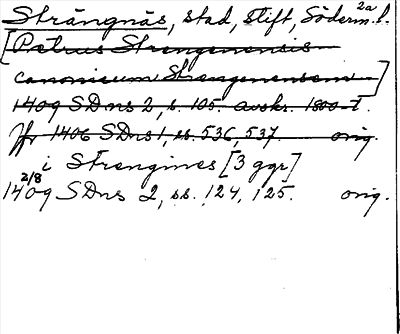 Strängnäs, stad, stift, Söderm. l. 2a
[Petrus Strengenensis
canonicum Strengenensem]
1409 SDns 2, s. 105. avskr. 1800-t.
Jfr 1406 SDns 1, ss. 536, 537. orig.
i Strengines [3 ggr]
1409 2/8 SDns 2, ss. 124, 125. orig.